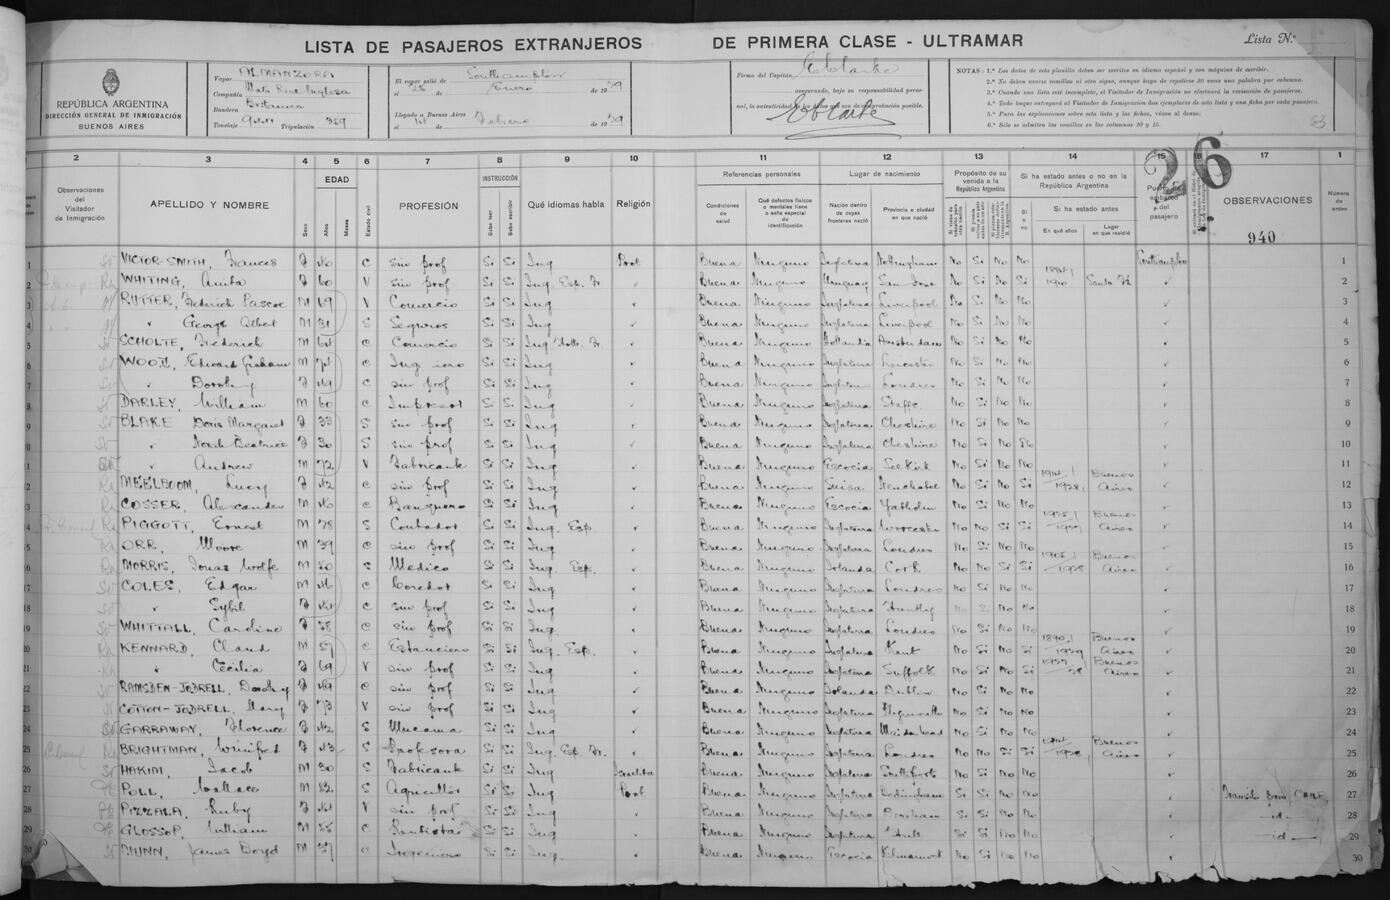 LISTA DE PASAJEROS EXTRANJEROS DE PRIMERA CLASE - ULTRAMAR Lista N.°
REPÚBLICA ARGENTINA
DIRECCIÓN GENERAL DE INMIGRACIÓN
BUENOS AIRES
Vapor ALMANZORA
Compañía Mala Real Inglesa
Bandera Britanica
Tonelaje Tripulación 329
El vapor salió de Southampton
el 28 Enero de 1939
Llegado a Buenos Aires
el Febrero de 1939
Firma del Capitán,
asegurando, bajo su responsabilidad personal, la autenticidad de los datos que son de comprobación posible.
NOTAS: 1.ª Los datos de esta planilla deben ser escritos en idioma español y con máquina de escribir.
2.ª No deben usarse comillas ni otro signo, aunque haya de repetirse 30 veces una palabra por columna.
3.ª Cuando una lista esté incompleta, el Visitador de Inmigración no efectuará la revisación de pasajeros.
4.ª Todo buque entregará al Visitador de Inmigración dos ejemplares de esta lista y una ficha por cada pasajero.
5.ª Para las explicaciones sobre esta lista y las fichas, véase al dorso.
6.ª Sólo se admiten las comillas en las columnas 10 y 15.
63
26
2 3 4 5 6 7 8 9 10 11 12 13 14 15 16 17 1
Observaciones del Visitador de Inmigración
APELLIDO Y NOMBRE
Sexo
EDAD
Años
Meses
Estado civil
PROFESIÓN
INSTRUCCIÓN
Sabe leer
Sabe escribir
Qué idiomas habla
Religión
Referencias personales
Condiciones de salud
Qué defectos físicos o mentales tiene o seña especial de identificación
Lugar de nacimiento
Nación dentro de cuyas fronteras nació
Provincia o ciudad en que nació
Propósito de su venida a la República Argentina
Si ha estado antes o no en la República Argentina
Si o no
Si ha estado antes
En qué años
Lugar en que residió
Puerto de embarco del pasajero
OBSERVACIONES
Número de orden
940
VICTOR-SMITH, Frances F 40 C sin prof Si Si Ing Prot Buena Ninguno Inglaterra Nottingham No Si No No Southampton 1
WHITING, Anita F 60 V sin prof Si Si Ing Esp. Fr Buena Ninguno Uruguay San Jose No Si No Si 1910 Santa Fé 2
RUTTER, Frederick Pascoe M 69 V Comercio Si Si Ing Buena Ninguno Inglaterra Liverpool No Si No No 3
" George Albert M 31 S Seguros Si Si Ing Buena Ninguno Inglaterra Liverpool No Si No No 4
SCHOLTE, Frederick M 64 C Comercio Si Si Ing Holl. Fr. Buena Ninguno Hollandia Amsterdam No Si No No 5
WOOD, Edward Graham M 74 C Ingeniero Si Si Ing Buena Ninguno Inglaterra Leicester No Si No No 6
" Dorothy F 49 C sin prof Si Si Ing Buena Ninguno Inglaterra Londres No Si No No 7
DARLEY, William M 60 C Impresor Si Si Ing Buena Ninguno Inglaterra Staffs. No Si No No 8
BLAKE Doris Margaret F 33 S sin prof Si Si Ing Buena Ninguno Inglaterra Cheshire No Si No No 9
" Norah Beatrice F 30 S sin prof Si Si Ing Buena Ninguno Inglaterra Cheshire No Si No No 10
" Andrew M 72 V Fabricante Si Si Ing Buena Ninguno Escocia Selkirk No Si No No 11
MEELBOOM, Lucy F 42 C sin prof Si Si Ing Buena Ninguno Suisa Neuchatel No Si No Si 1928 Buenos Aires 12
COSSER, Alexander M 40 C Banquero Si Si Ing Buena Ninguno Escocia No Si No No 13
PIGGOTT, Ernest M 38 S Contador Si Si Ing. Esp. Buena Ninguno Inglaterra Worcester No No Si Si Buenos Aires 14
ORR, Moore M 39 C sin prof Si Si Ing Buena Ninguno Inglaterra Londres No Si No No 15
MORRIS, Jonas Wolfe M 50 S Medico Si Si Ing Esp. Buena Ninguno Irlanda Cork No No Si Si Buenos Aires 16
COLES, Edgar M 46 C Corredor Si Si Ing Buena Ninguno Inglaterra Londres No Si No No 17
" Sybil F 41 C sin prof Si Si Ing Buena Ninguno Inglaterra Huntly No Si No No 18
WHITTALL, Caroline F 58 C sin prof Si Si Ing Buena Ninguno Inglaterra Londres No Si No No 19
KENNARD, Claud M 57 C Estanciero Si Si Ing. Esp. Buena Ninguno Inglaterra Kent No Si No Si 1890 Buenos Aires 20
" Cecilia F 69 V sin prof Si Si Ing Buena Ninguno Inglaterra Suffolk No Si No Si Buenos Aires 21
RAMSDEN-JODRELL, Dorothy F 49 C sin prof Si Si Ing Buena Ninguno Irlanda Dublin No Si No No 22
COTTON-JODRELL, Mary F 73 V sin prof Si Si Ing Buena Ninguno Inglaterra Plymouth No Si No No 23
GARRAWAY, Florence F 42 S Mucama Si Si Ing Buena Ninguno Inglaterra Maidenhead No Si No No 24
BRIGHTMAN, Winifred F 43 S Profesora Si Si Ing. Esp. Fr. Buena Ninguno Inglaterra Londres No No Si Si Buenos Aires 25
HAKIM, Jacob M 30 S Fabricante Si Si Ing Israelita Buena Ninguno Inglaterra Southport No Si No No 26
POLL, Wallace M 52 S Si Si Ing Prot. Buena Ninguno Inglaterra Si Si No No Transito para CHILE 27
PIZZALA, Ruby F 41 V sin prof Si Si Ing Buena Ninguno Inglaterra Si Si No No —id— 28
GLOSSOP, William M 55 C Rentista Si Si Ing Buena Ninguno Inglaterra Hull Si Si No No —id— 29
DUNN, James Boyd M 37 C Ingeniero Si Si Ing. Buena Ninguno Escocia Kilmarnock No Si No No 30